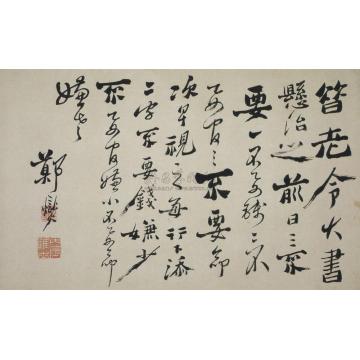 昝老令大書
懸治之前曰三不
要一不要錢二不
要官三不要命
次早視之每行下添
二字不要錢嫌少
不要官嫌小不要命
嫌老
鄭燮